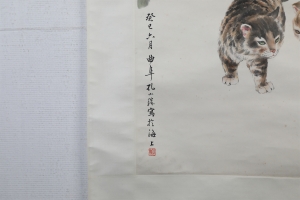 癸巳六月曲阜孔小瑜寫於海上